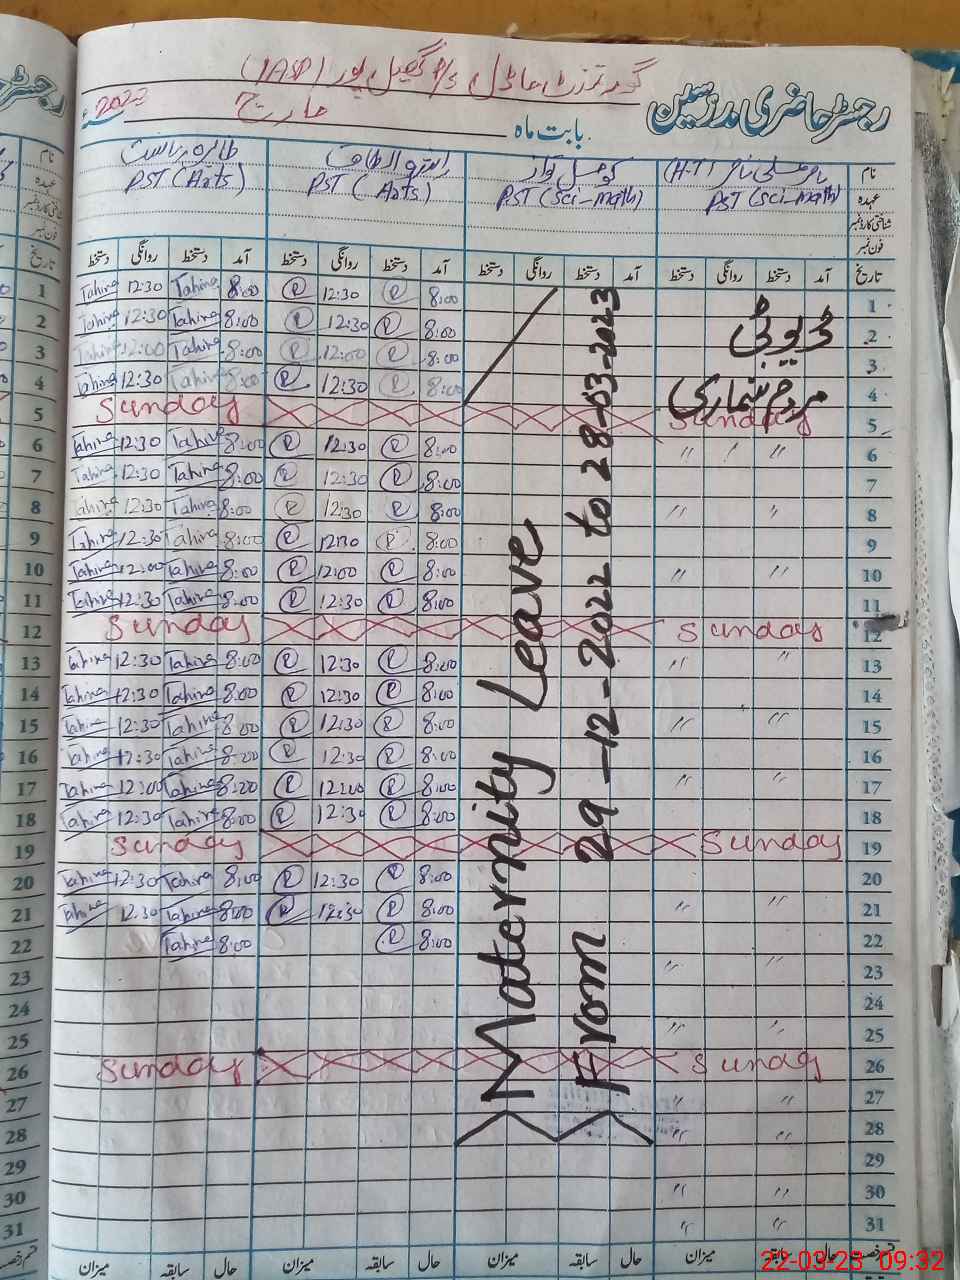 رجسٹر حاضری مدرسین
گورنمنٹ ماڈل P/S گھیل پور (IASP)
بابت ماہ مارچ 2023ء
نام (H-T) کومل نواز طاہرہ راست
عہدہ PST (Sci-Math) PST (Sci-Math) PST (Arts) PST (Arts)
شناختی کارڈ نمبر
فون نمبر
تاریخ آمد دستخط روانگی دستخط آمد دستخط روانگی دستخط آمد دستخط روانگی دستخط آمد دستخط روانگی دستخط
1 8:00 R 12:30 R 8:00 Tahira 12:30 Tahira
2 ڈیوٹی 8:00 R 12:30 R 8:00 Tahira 12:30 Tahira
3 8:00 R 12:00 R 8:00 Tahira 12:00 Tahira
4 مردم شماری 8:00 R 12:30 R 8:00 Tahira 12:30 Tahira
5 Sunday Sunday
6 " " " 8:00 R 12:30 R 8:00 Tahira 12:30 Tahira
7 8:00 R 12:30 R 8:00 Tahira 12:30 Tahira
8 " " 8:00 R 12:30 R 8:00 Tahira 12:30 Tahira
9 8:00 R 12:30 R 8:00 Tahira 12:30 Tahira
10 " " 8:00 R 12:00 R 8:00 Tahira 12:00 Tahira
11 8:00 R 12:30 R 8:00 Tahira 12:30 Tahira
12 Sunday Sunday
13 " " 8:00 R 12:30 R 8:00 Tahira 12:30 Tahira
14 8:00 R 12:30 R 8:00 Tahira 12:30 Tahira
15 " " 8:00 R 12:30 R 8:00 Tahira 12:30 Tahira
16 8:00 R 12:30 R 8:00 Tahira 12:30 Tahira
17 " " 8:00 R 12:00 R 8:00 Tahira 12:00 Tahira
18 8:00 R 12:30 R 8:00 Tahira 12:30 Tahira
19 Sunday Sunday
20 8:00 R 12:30 R 8:00 Tahira 12:30 Tahira
21 " " 8:00 R 12:30 R 8:00 Tahira 12:30 Tahira
22 8:00 R 8:00 Tahira
23 " "
24
25 " "
26 Sunday Sunday
27 " "
28 " "
29
30 " "
31 " "
Maternity Leave
From 29-12-2022 to 28-03-2023
حال سابقہ میزان حال سابقہ میزان حال سابقہ میزان حال سابقہ میزان
22-03-23 09:32